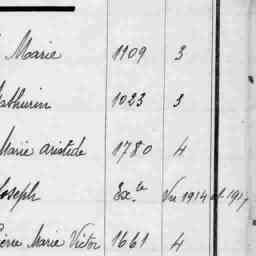 Marie 1109 3
Mathurin 1023 3
Marie aristide 1780 4
Joseph Exte Vu 1914 et 1917
Pierre Marie Victor 1661 4